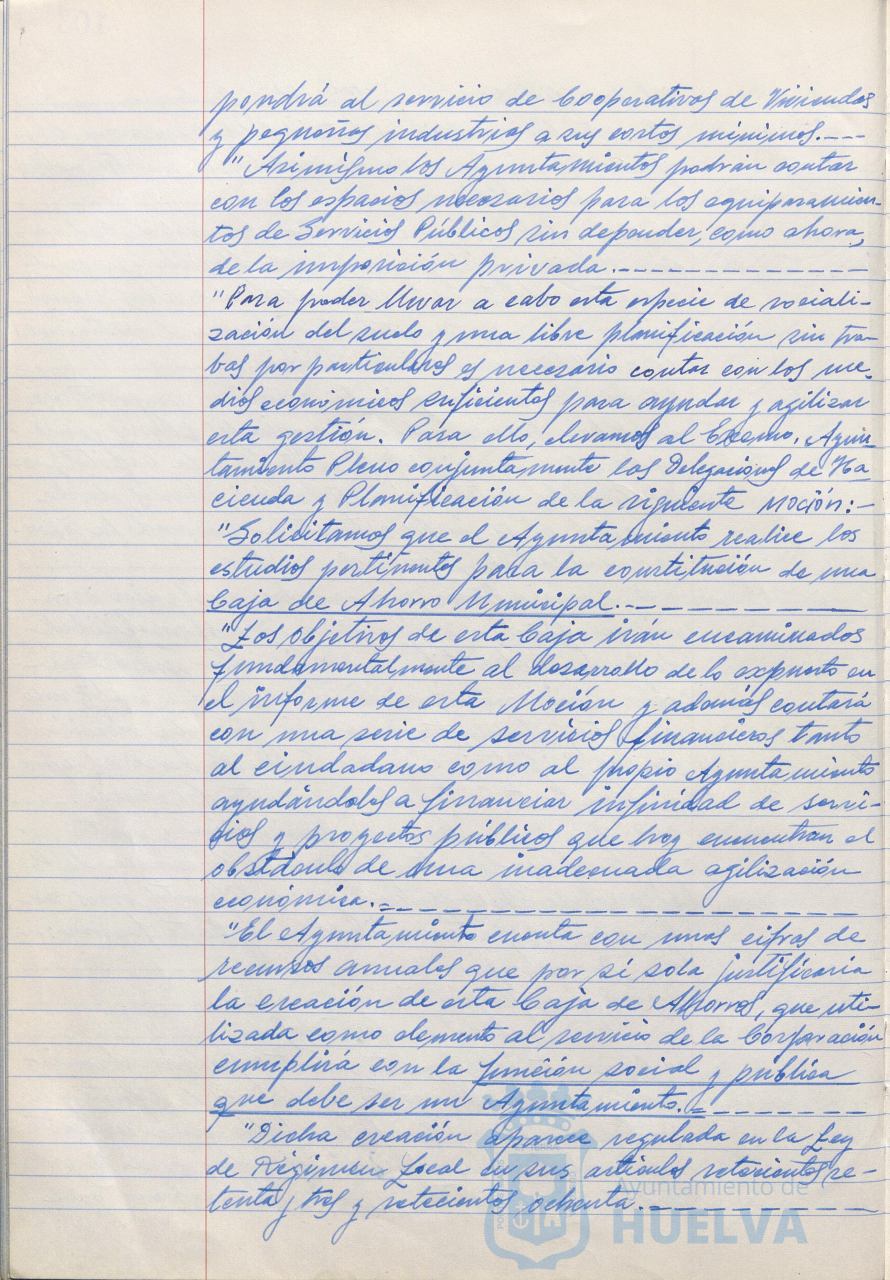 pondrá al servicio de Cooperativas de Viviendas
y pequeñas industrias a sus costos mínimos.----
"Asimismo los Ayuntamientos podrán contar
con los espacios necesarios para los equipamien-
tos de Servicios Públicos sin depender, como ahora,
de la imposición privada.--------------
"Para poder llevar a cabo esta especie de sociali-
zación del suelo y una libre planificación sin tra-
bas por particulares es necesario contar con los me-
dios económicos suficientes para ayudar y agilizar
esta gestión. Para ello, elevamos al Excmo. Ayun-
tamiento Pleno conjuntamente las Delegaciones de Ha
cienda y Planificación de la siguiente moción:-
"Solicitamos que el Ayuntamiento realice los
estudios pertinentes para la constitución de una
Caja de Ahorro Municipal.-------------
"Los objetivos de esta Caja irán encaminados
fundamentalmente al desarrollo de lo expuesto en
el informe de esta Moción y además contará
con una serie de servicios financieros tanto
al ciudadano como al propio Ayuntamiento
ayudándoles a financiar infinidad de servi-
cios y proyectos públicos que hoy encuentran el
obstáculo de una inadecuada agilización
económica.=----------------------
"El Ayuntamiento cuenta con unas cifras de
recursos anuales que por sí sola justificaría
la creación de esta Caja de Ahorros, que uti-
lizada como elemento al servicio de la Corporación
cumplirá con la función social y pública
que debe ser un Ayuntamiento.=--------
"Dicha creación aparece regulada en la Ley
de Régimen Local en sus artículos setecientos se-
tenta y tres y setecientos ochenta.---------
Ayuntamiento de
HUELVA